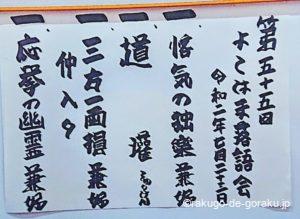 第五十五回
よこはま落語会
令和二年七月二十三
悋気の独楽 兼好
道灌
三方一両損 兼好
仲入り
応挙の幽霊 兼好
©rakugo-de-goraku.jp